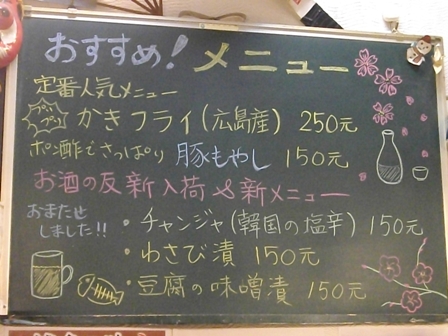 おすすめ!メニュー
定番人気メニュー
プリプリ かきフライ(広島産) 250元
ポン酢でさっぱり 豚もやし 150元
お酒の友新入荷&新メニュー
おまたせしました!!
・チャンジャ(韓国の塩辛) 150元
・わさび漬 150元
・豆腐の味噌漬 150元